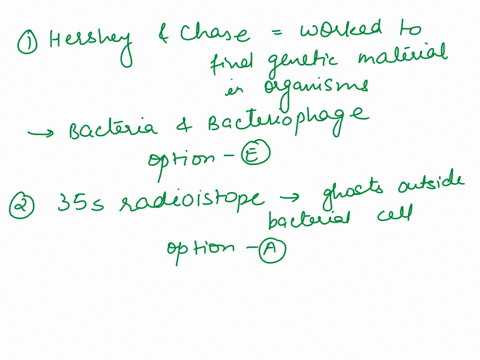 ① Hershey & Chase = worked to
find genetic material
in organisms
→ Bacteria & Bacteriophage
option - Ⓔ
② 35s radioistope → ghosts outside
bacterial cell
option - Ⓐ